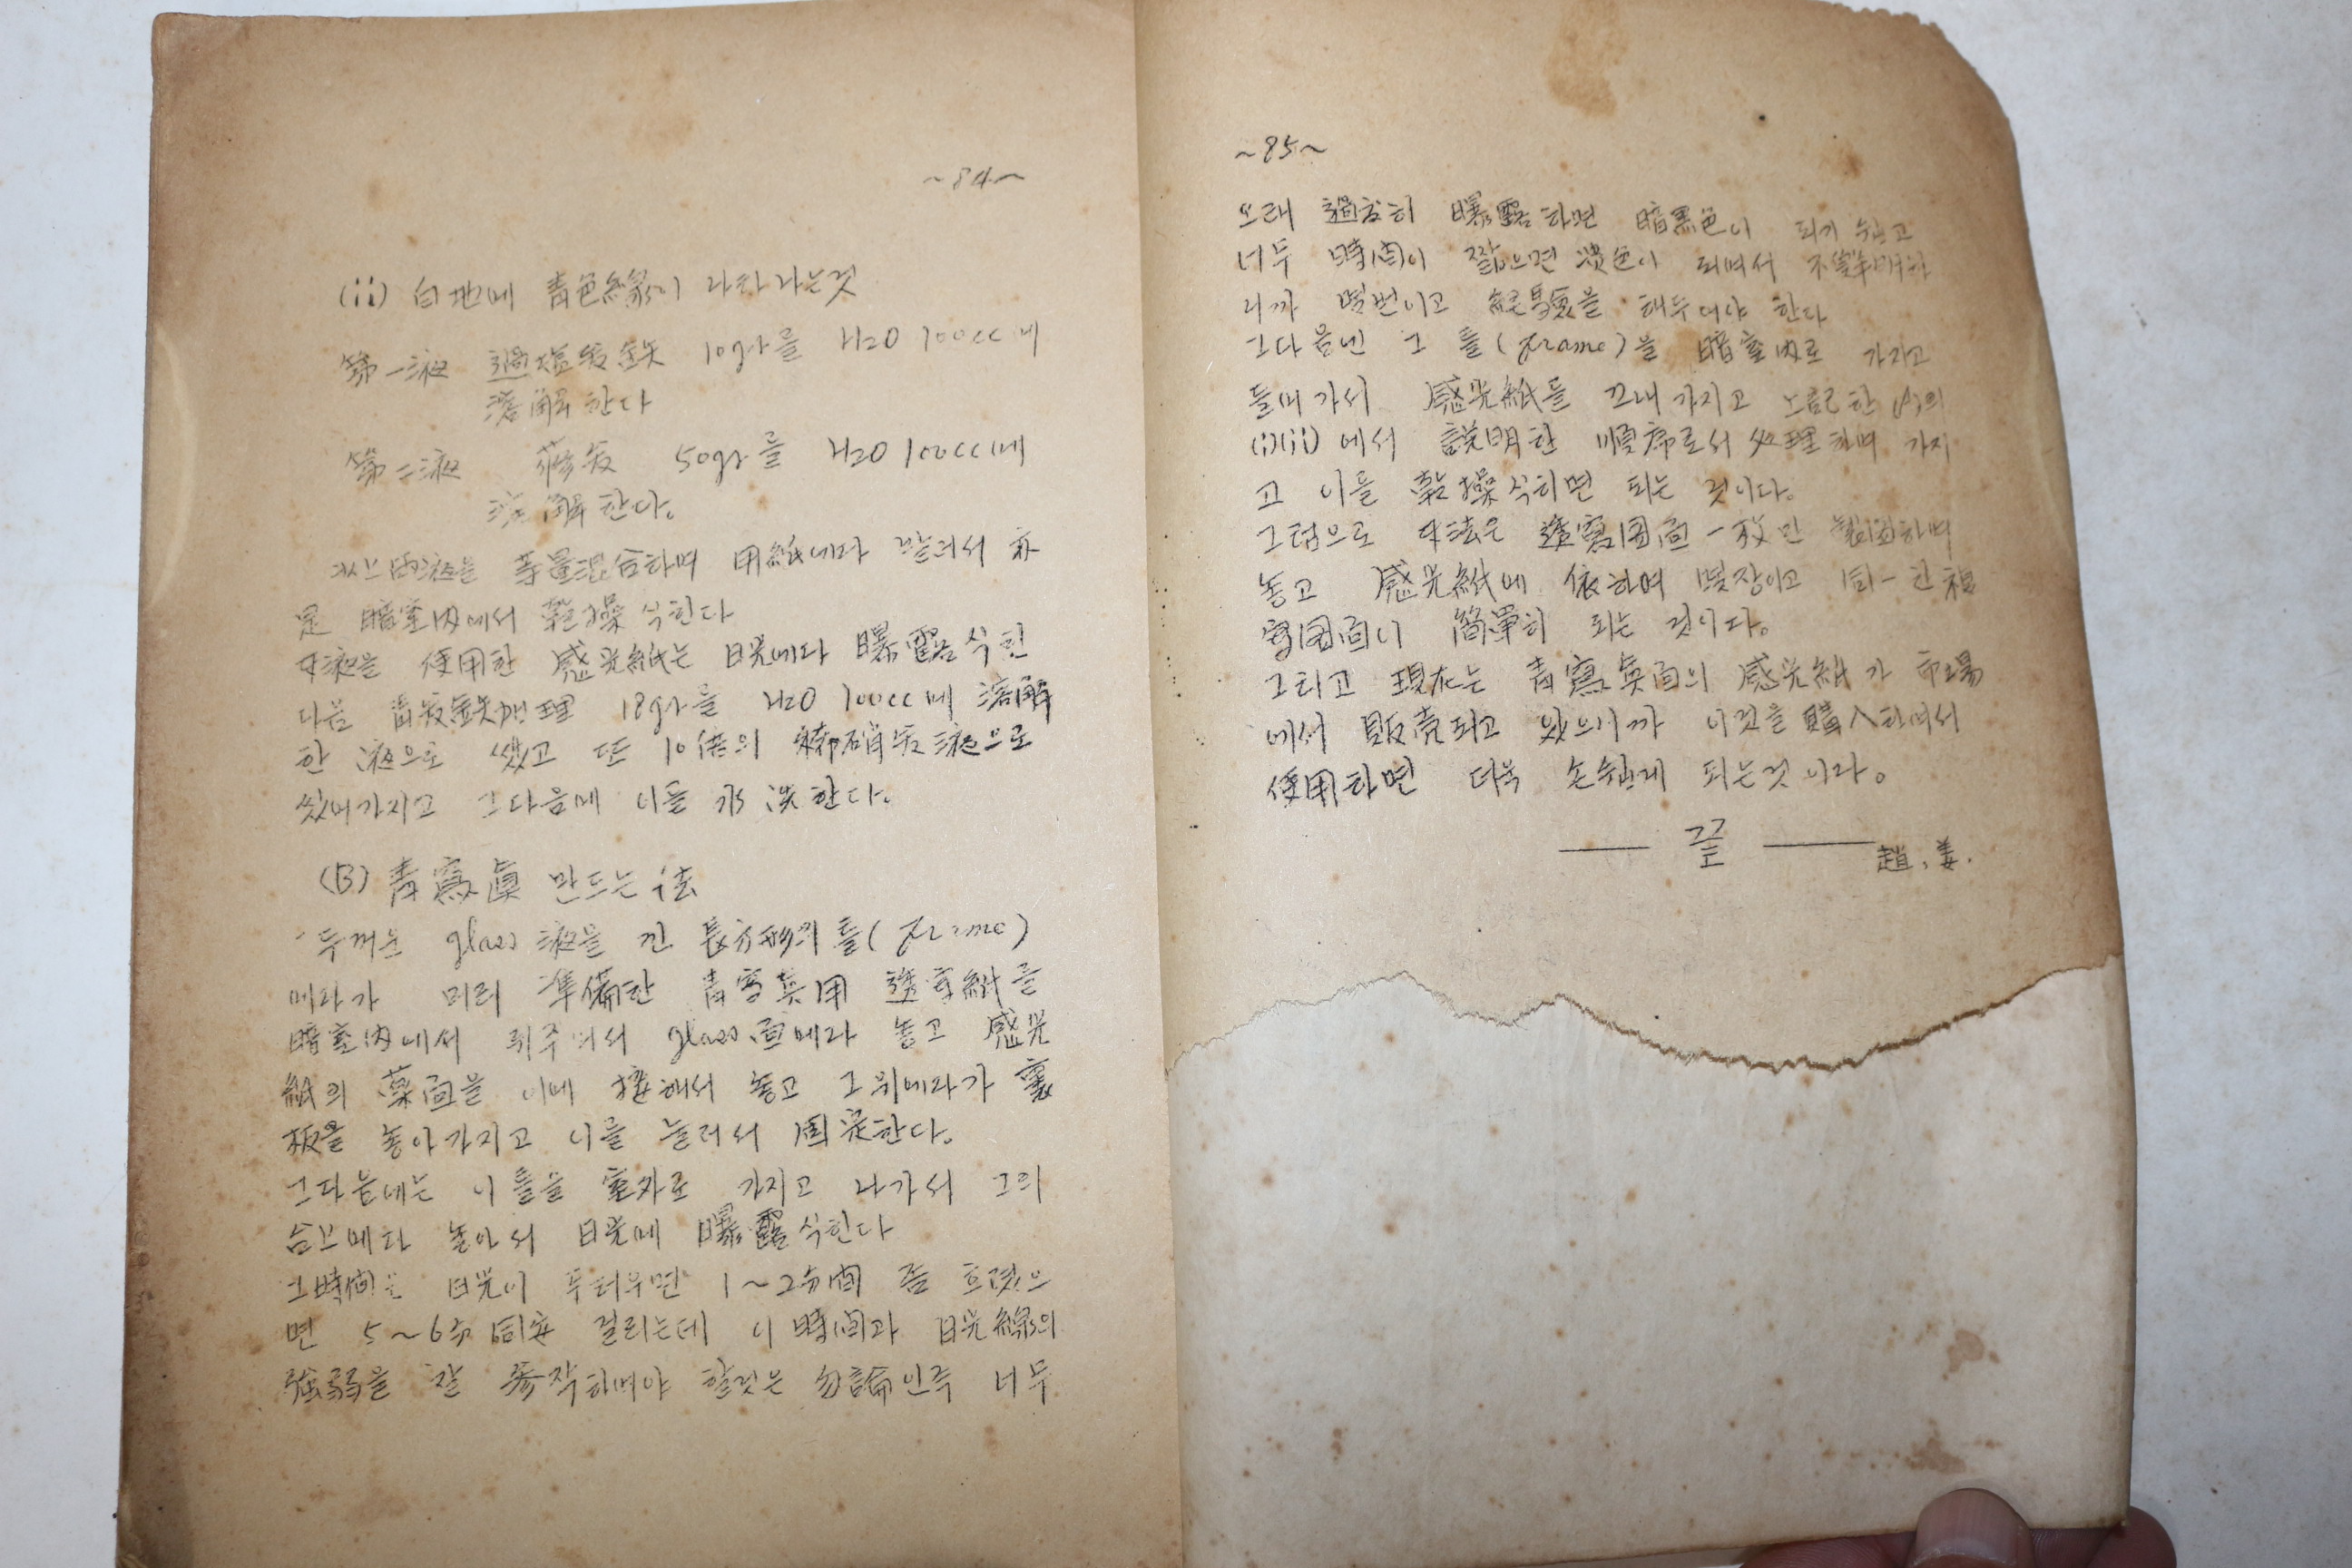 ~84~
(ii) 白地에 靑色線이 나타나는것
第一液 過塩酸鉄 10gr를 H2O 100cc에
溶解한다
第二液 蓚酸 50gr를 H2O 100cc에
溶解한다。
等量混合하며 用紙에다 발러서
暗室內에서 乾操식힌다
本液을 使用한 感光紙는 日光에다 曝露식힌
다음 18gr를 H2O 100cc에 溶解
한 液으로 씻고 또 10倍의 稀硝酸液으로
씻어가지고 그다음에 이를 水洗한다。
(B) 靑寫眞 만드는 法
두꺼운 glass 液을 낀 長方形의 틀(frame)
에다가 미리 準備한 靑寫眞用 透写紙를
暗室內에서 glass面에다 놓고 感光
紙의 薬面을 이에 接해서 놓고 그위에다가 裏
板을 놓아가지고 이를 눌러서 固定한다。
그다음에는 이 틀을 室外로 가지고 나가서 그의
놓아서 日光에 曝露식힌다
그時間은 日光이 두터우면 1~2分間 좀 흐렸으
면 5~6分 걸리는데 이 時間과 日光線의
強弱을 잘 參作하여야 할것은 勿論인즉 너무
~85~
오래 過度히 曝露하면 暗黑色이 되기 쉽고
너무 時間이 짧으면 淡色이 되여서
니까 몇번이고 経験을 해두어야 한다
그다음엔 그 틀(frame)을 暗室內로 가지고
들어가서 感光紙를 끄내가지고 (A)의
(i)(ii)에서 説明한 順序로서 処理하여 가지
고 이를 乾操식히면 되는 것이다。
그럼으로 本法은 透寫圖面 一枚만 製図하여
놓고 感光紙에 依하여 몇장이고 同一한
寫图面이 簡單히 되는 것이다。
그리고 現在는 靑寫眞面의 感光紙가 市場
에서 販売되고 있으니까 이것을 購入하여서
使用하면 더욱 손쉽게 되는것이다。
—— 끝 ——
趙. 姜.